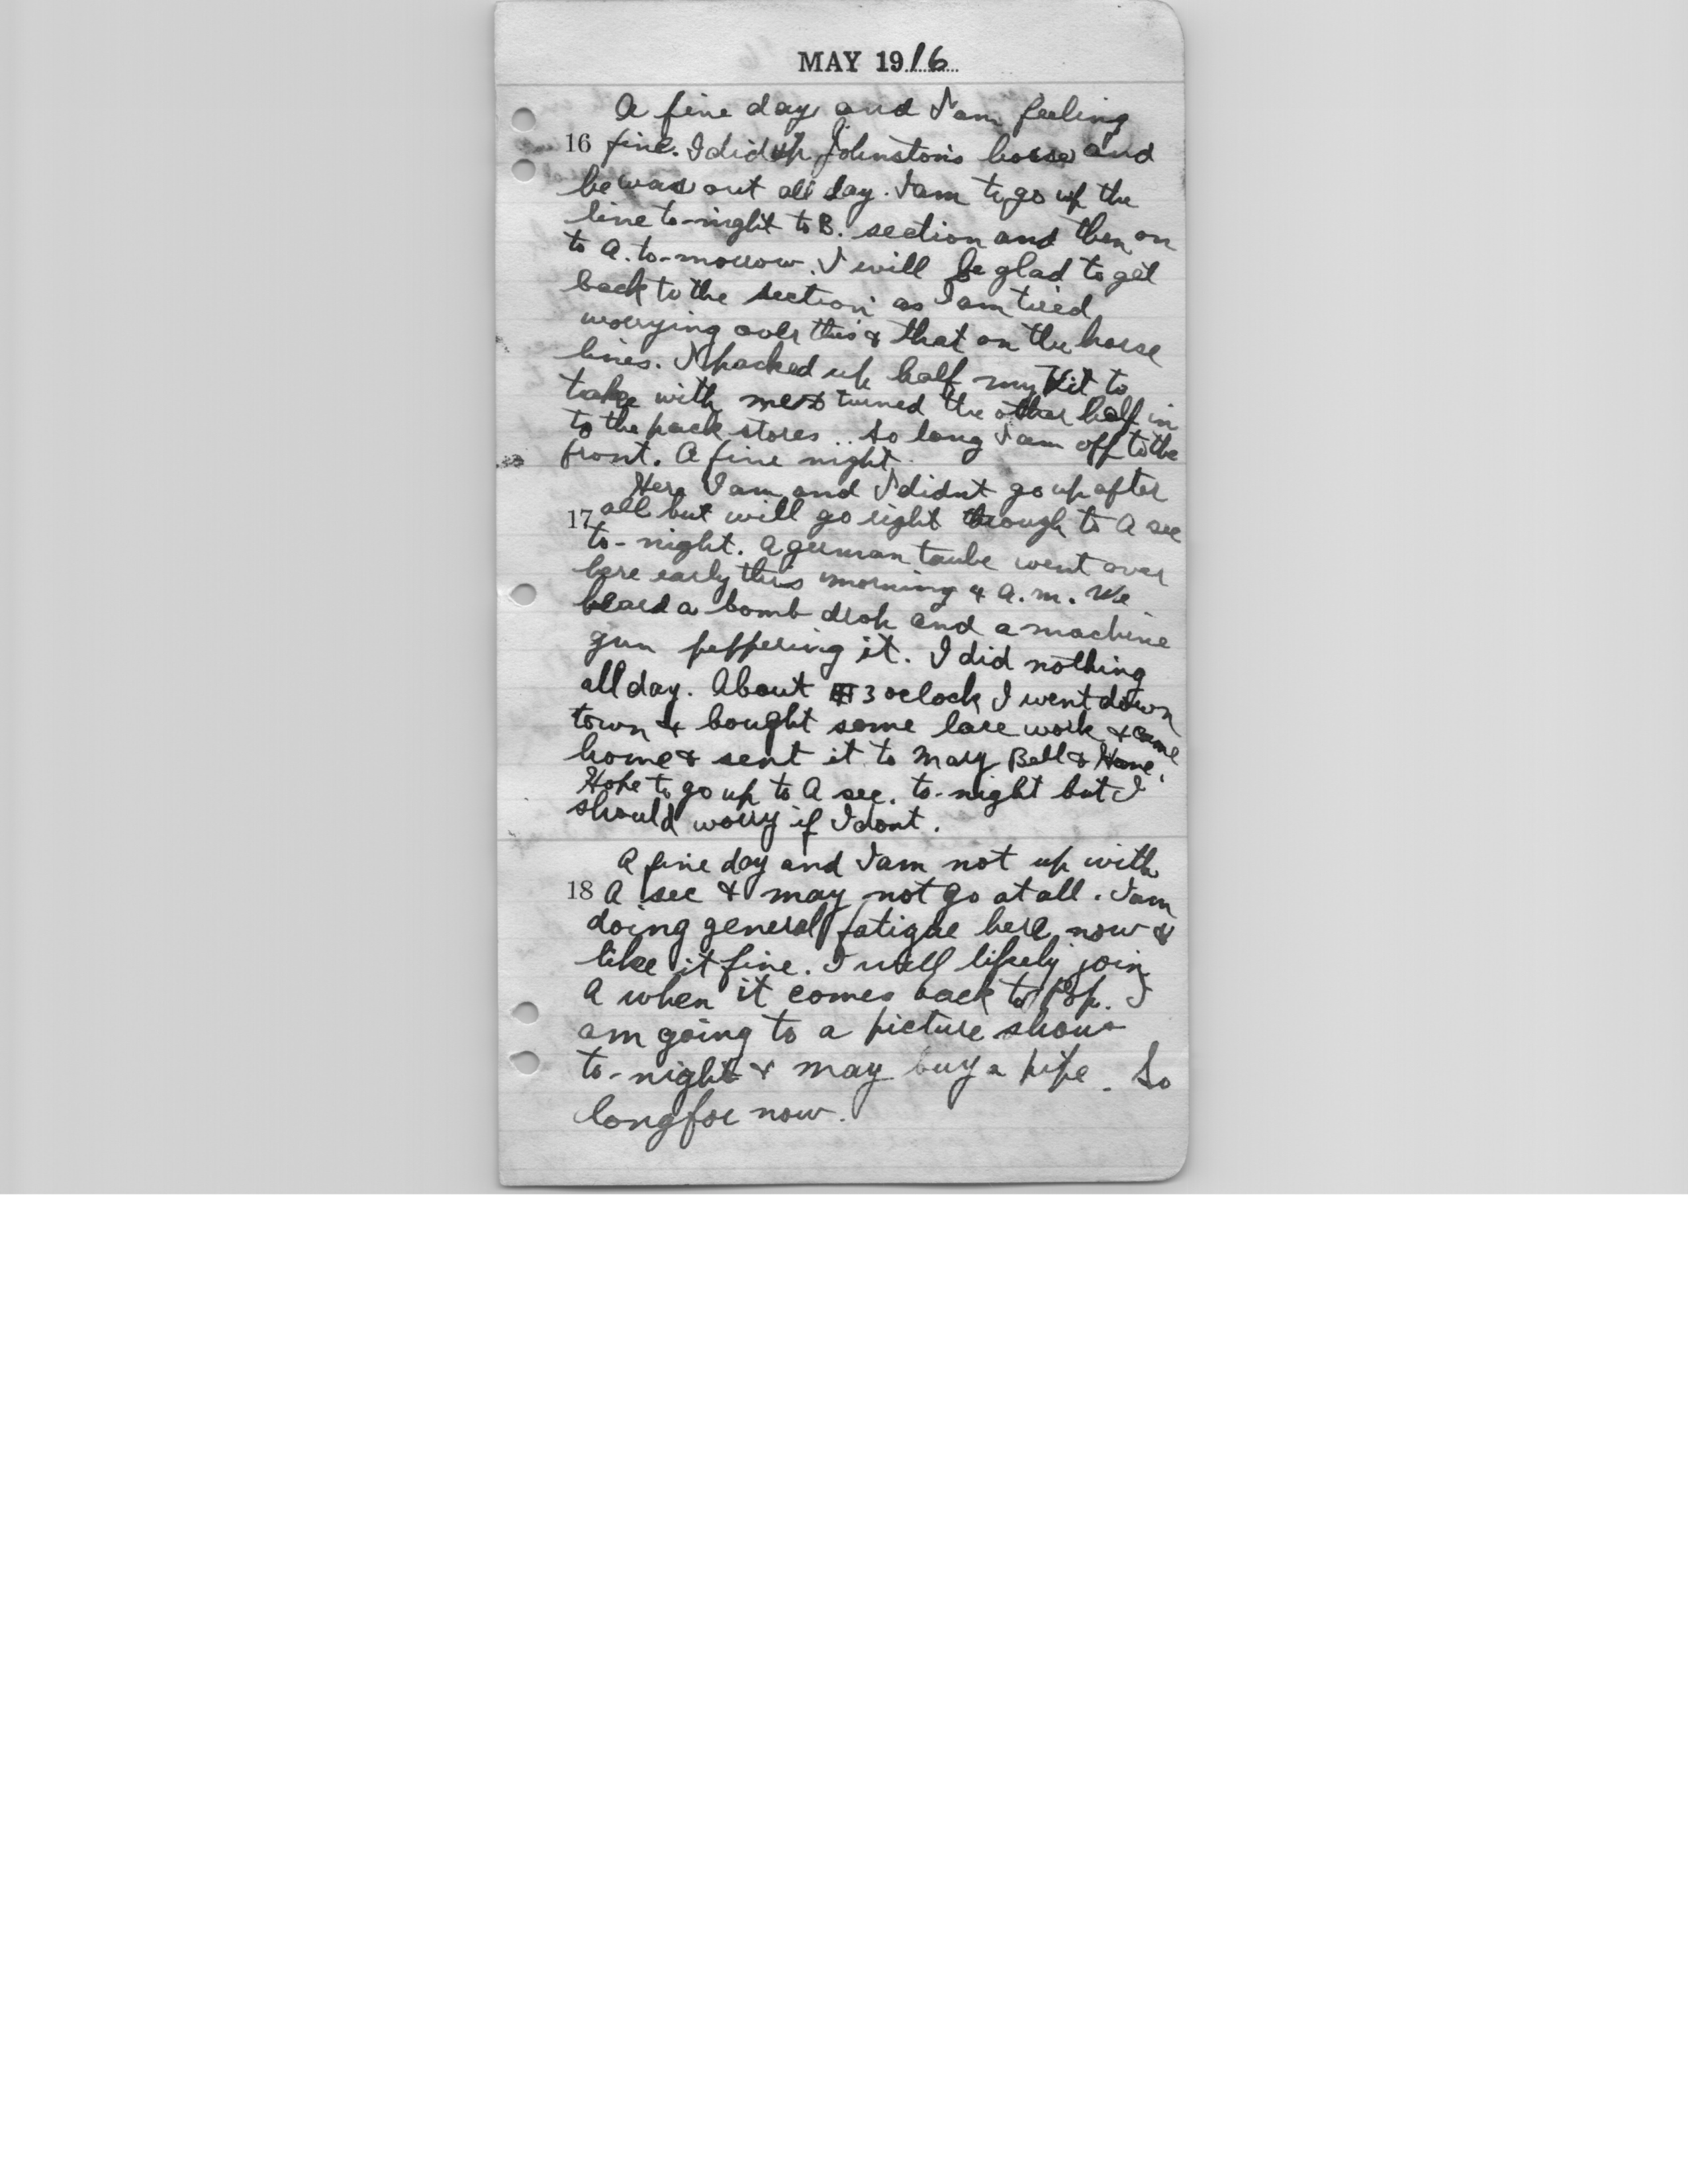 MAY 1916
A fine day and I am feeling
16 fine. I did up Johnston's horse and
he was out all day. I am to go up the
line to-night to B. section and then on
to A. to-morrow. I will be glad to get
back to the section as I am tired
worrying over this & that on the horse
lines. I packed up half my kit to
take with me & turned the other half in
to the pack stores .. So long I am off to the
front. A fine night.
Here I am and I didnt go up after
17 all but will go right through to A sec
to-night. A german taube went over
here early this morning 4 a.m. We
heard a bomb drop and a machine
gun peppering it. I did nothing
all day. About 3 oclock I went down
town & bought some lace work & came
home & sent it to Mary Bell & Home.
Hope to go up to A sec. to-night but I
should worry if I dont.
A fine day and I am not up with
18 A sec & may not go at all. I am
doing general fatigue here now &
like it fine. I will likely join
A when it comes back to Pop. I
am going to a picture show
to-night & may buy a pipe. So
long for now.